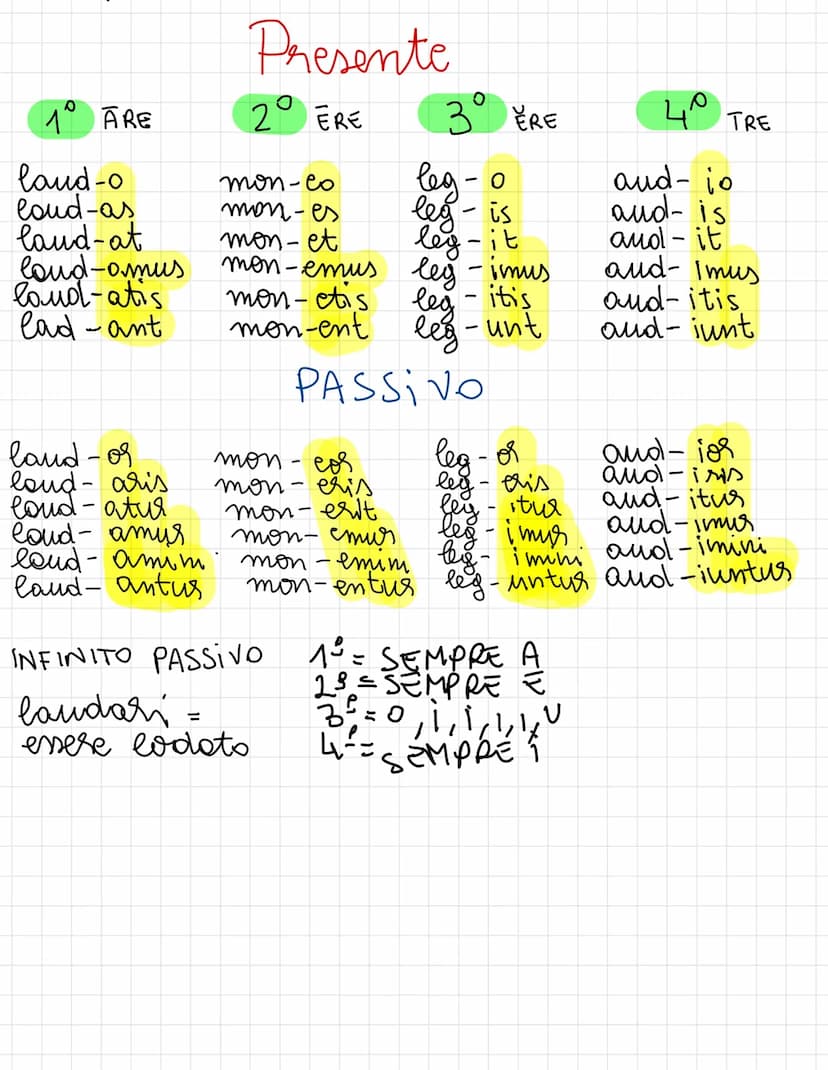 Presente
1º ĀRE 2º ĒRE 3º ĔRE 4º IRE
laud-o mon-eo leg-o aud-io
laud-as mon-es leg-is aud-is
laud-at mon-et leg-it aud-it
laud-amus mon-emus leg-imus aud-imus
laud-atis mon-etis leg-itis aud-itis
lad-ant mon-ent leg-unt aud-iunt
PASSIVO
laud-or mon-eor leg-or aud-ior
laud-aris mon-eris leg-eris aud-iris
laud-atur mon- leg-itur aud-itur
laud-amur mon-emur leg-imur aud-imur
laud-amini mon-emini leg-imini aud-imini
laud-antur mon-entur leg-untur aud-iuntur
INFINITO PASSIVO 1º = SEMPRE A
2º = SEMPRE E
laudari = 3º = O, i, i, i, i, U
essere lodato 4º = SEMPRE i